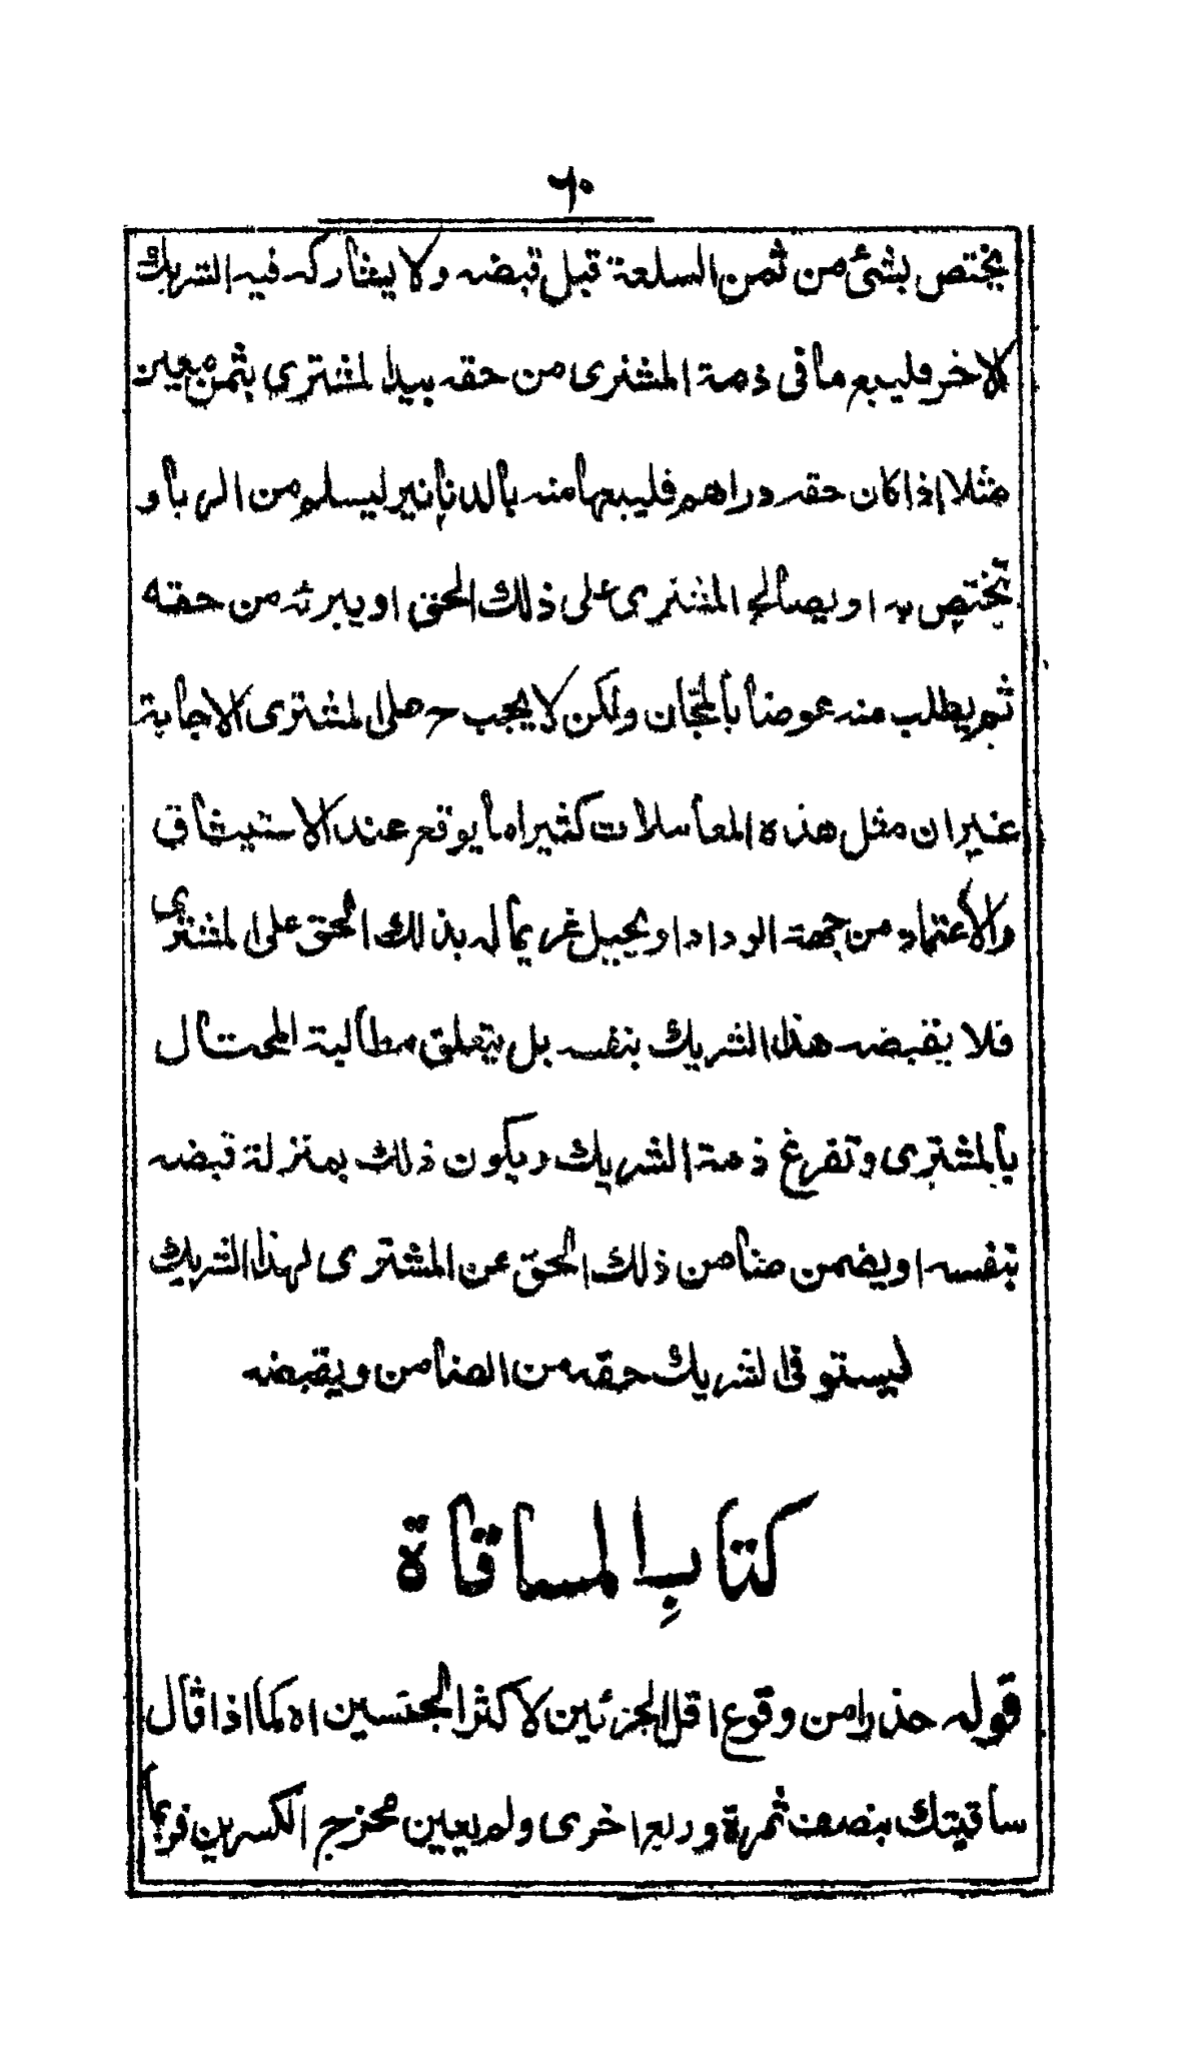 ٦٠
يختص بشئ من ثمن السلعة قبل قبضه ولا يشاركه فيه الشريك
الاخر فليبع ما فى ذمة المشترى من حقه بيد المشترى بثمن معين
مثلا اذا كان حقه دراهم فليبعها منه بالدنانير ليسلم من الربا و
يختص به او يصالح المشترى على ذلك الحق او يبرئه من حقه
ثم يطلب منه عوضا بالمجان ولكن لا يجب ح على المشترى الاجابة
غير ان مثل هذه المعاملات كثيرا ما يوقع عند الاستيثاق
والاعتماد من جهة الوداد او يحيل غريما له بذلك الحق على المشترى
فلا يقبضه هذا الشريك بنفسه بل يتعلق مطالبة المحتال
بالمشترى وتفرغ ذمة الشريك ويكون ذلك بمنزلة قبضه
بنفسه او يضمن ضامن ذلك الحق عن المشترى لهذا الشريك
ليستوفى الشريك حقه من الضامن ويقبضه
كتابِ المساقاة
قوله حذرا من وقوع اقل الجزئين لاكثر الجنسين اه كما اذا قال
ساقيتك بنصف ثمرة وربع اخرى ولم يعين مخرج الكسرين فربما